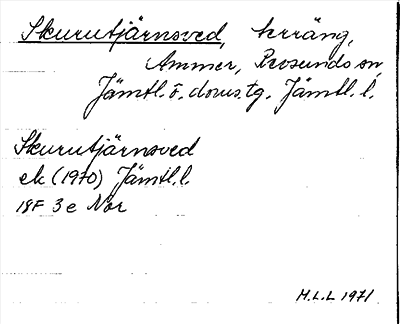 Skurutjärnsved, terräng,
Ammer, Revsunds sn,
Jämtl. ö. doms. tg. Jämtl. l.
Skurutjärnsved
ek (1970) Jämtl. l.
18F 3e Nor
M.L.L 1971